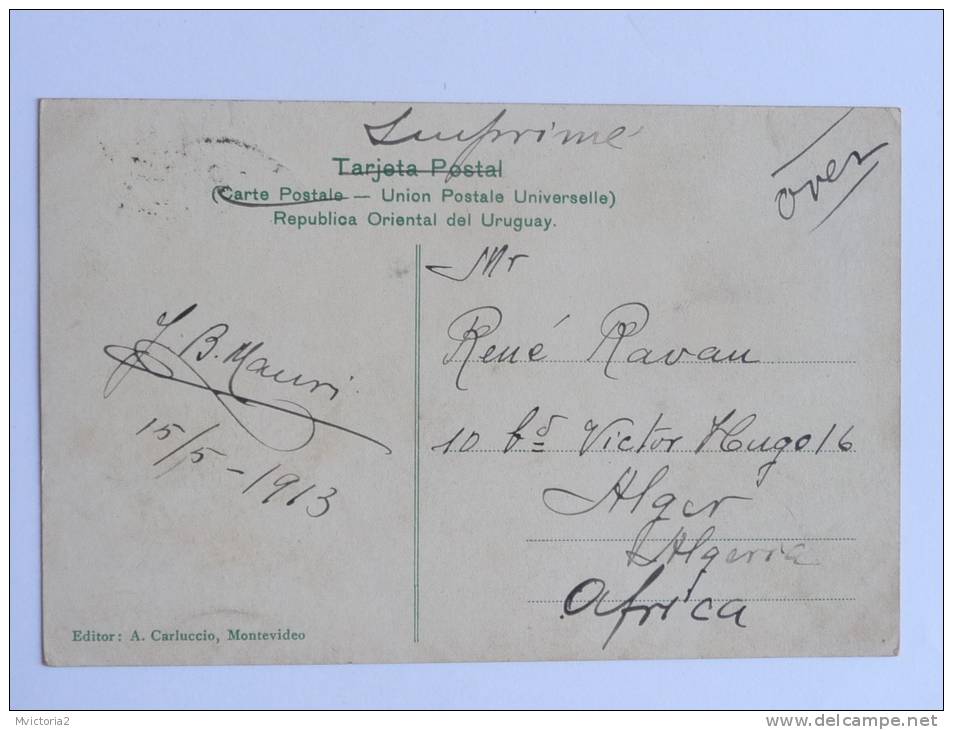 Imprimé
over
Tarjeta Postal
(Carte Postale — Union Postale Universelle)
Republica Oriental del Uruguay.
J. B. Mauri
15/5-1913
Mr
René Ravau
10 bd Victor Hugo 16
Alger
Algeria
Africa
Editor: A. Carluccio, Montevideo
Mvictoria2
www.delcampe.net